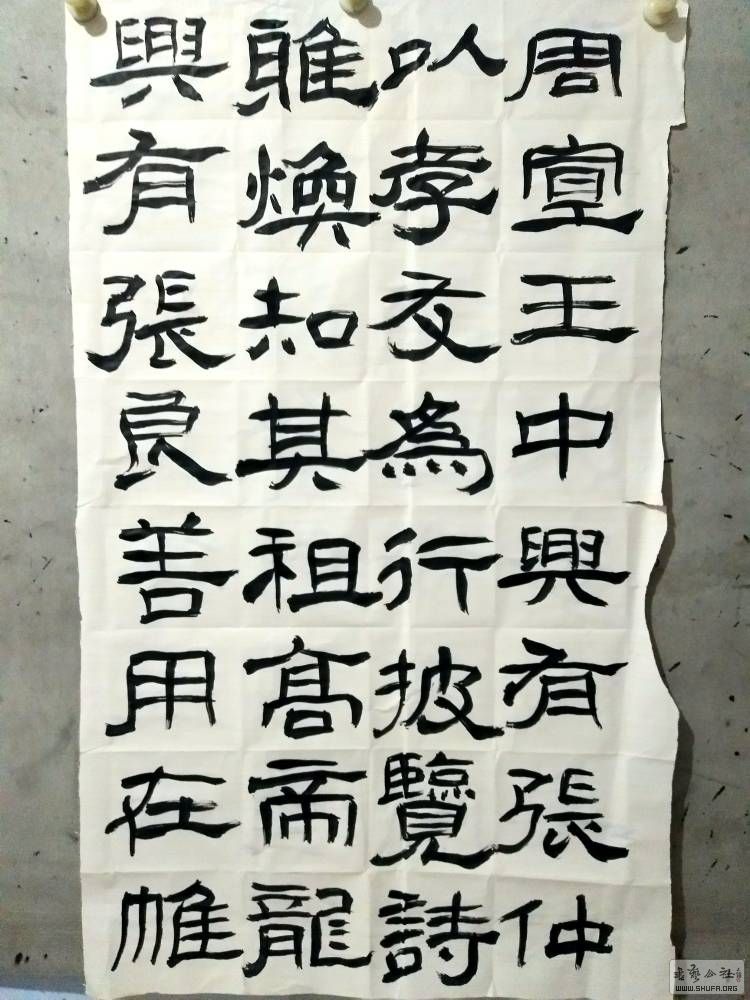 周宣王中興有張仲
以孝友為行披覽詩
雅煥知其祖高帝龍
興有張良善用在帷
书艺公社
WWW.SHUFA.ORG